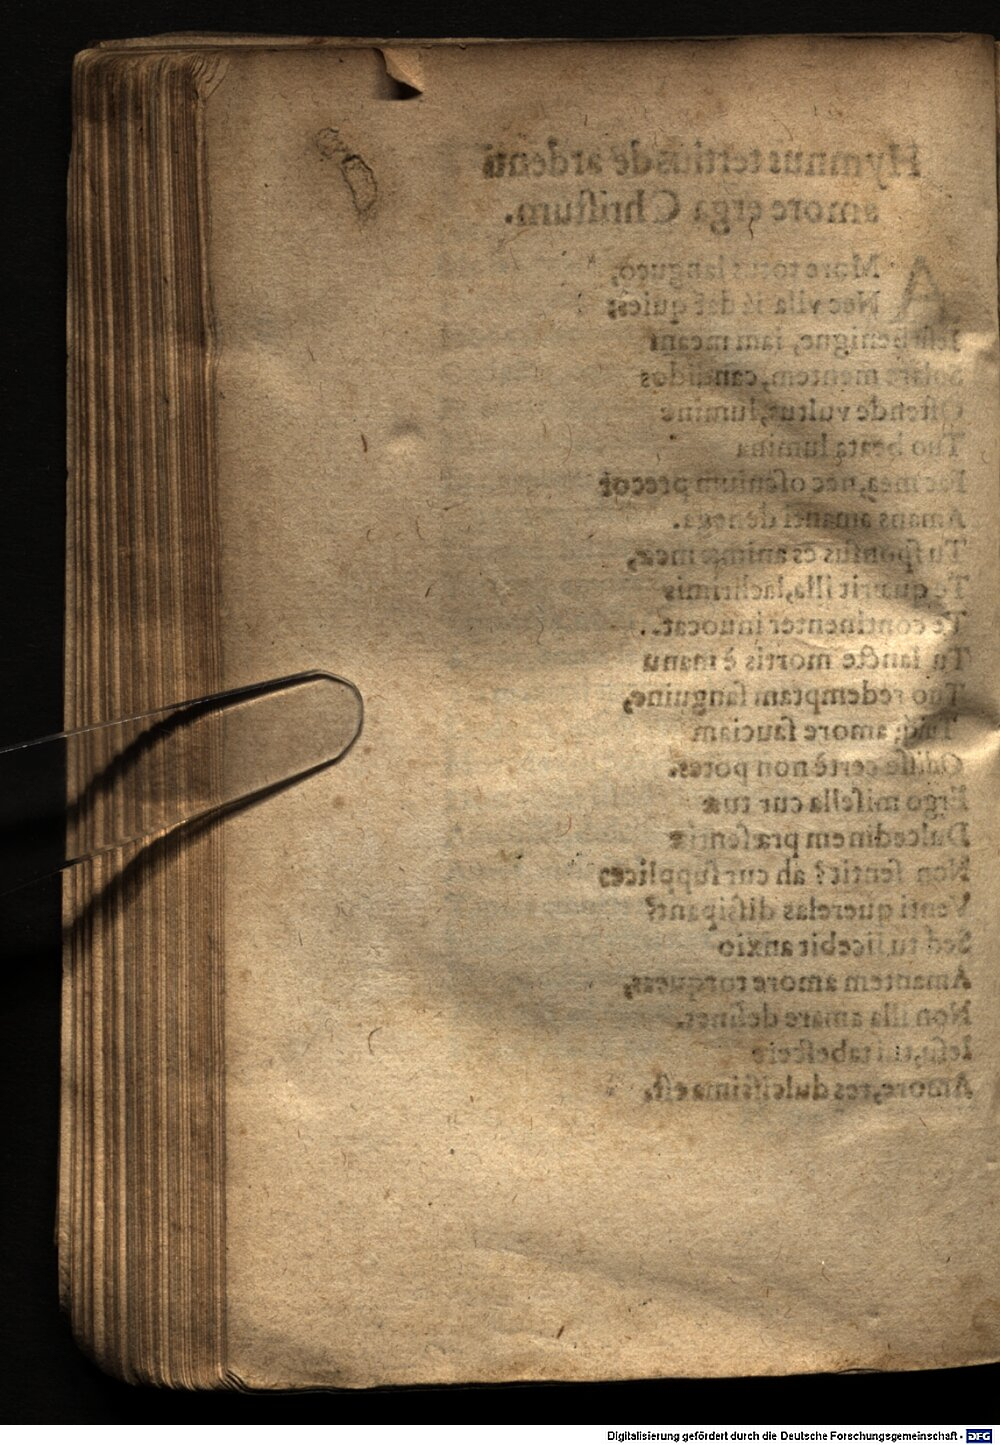 Hymnus tertius de ardenti
amore erga Chriſtum.
AMore totus langueo,
Nec vlla iā dat quies:
Ieſu benigne, iam meam
mentem, candidos
Oſtende vultus, lumine
Tuo beata lumina
Fac mea, nec oſculum precor
Amans amanti denega.
Tu ſponſus es animæ meæ,
Te quærit illa, lachrimis
Te continenter inuocat.
Tu ſancte mortis è manu
Tuo redemptam ſanguine,
Tuiq; amore ſauciam
Odiſſe certè non potes.
Ergo miſella cur tuæ
Dulcedinem præſentiæ
Non ſentit? ah cur ſupplices
Venti querelas diſsipant?
Sed tu licebit anxio
Amantem amore torqueas,
Non illa amare deſinet.
Ieſu, tui tabeſcere
Amore, res dulciſſima eſt.
Digitalisierung gefördert durch die Deutsche Forschungsgemeinschaft - DFG